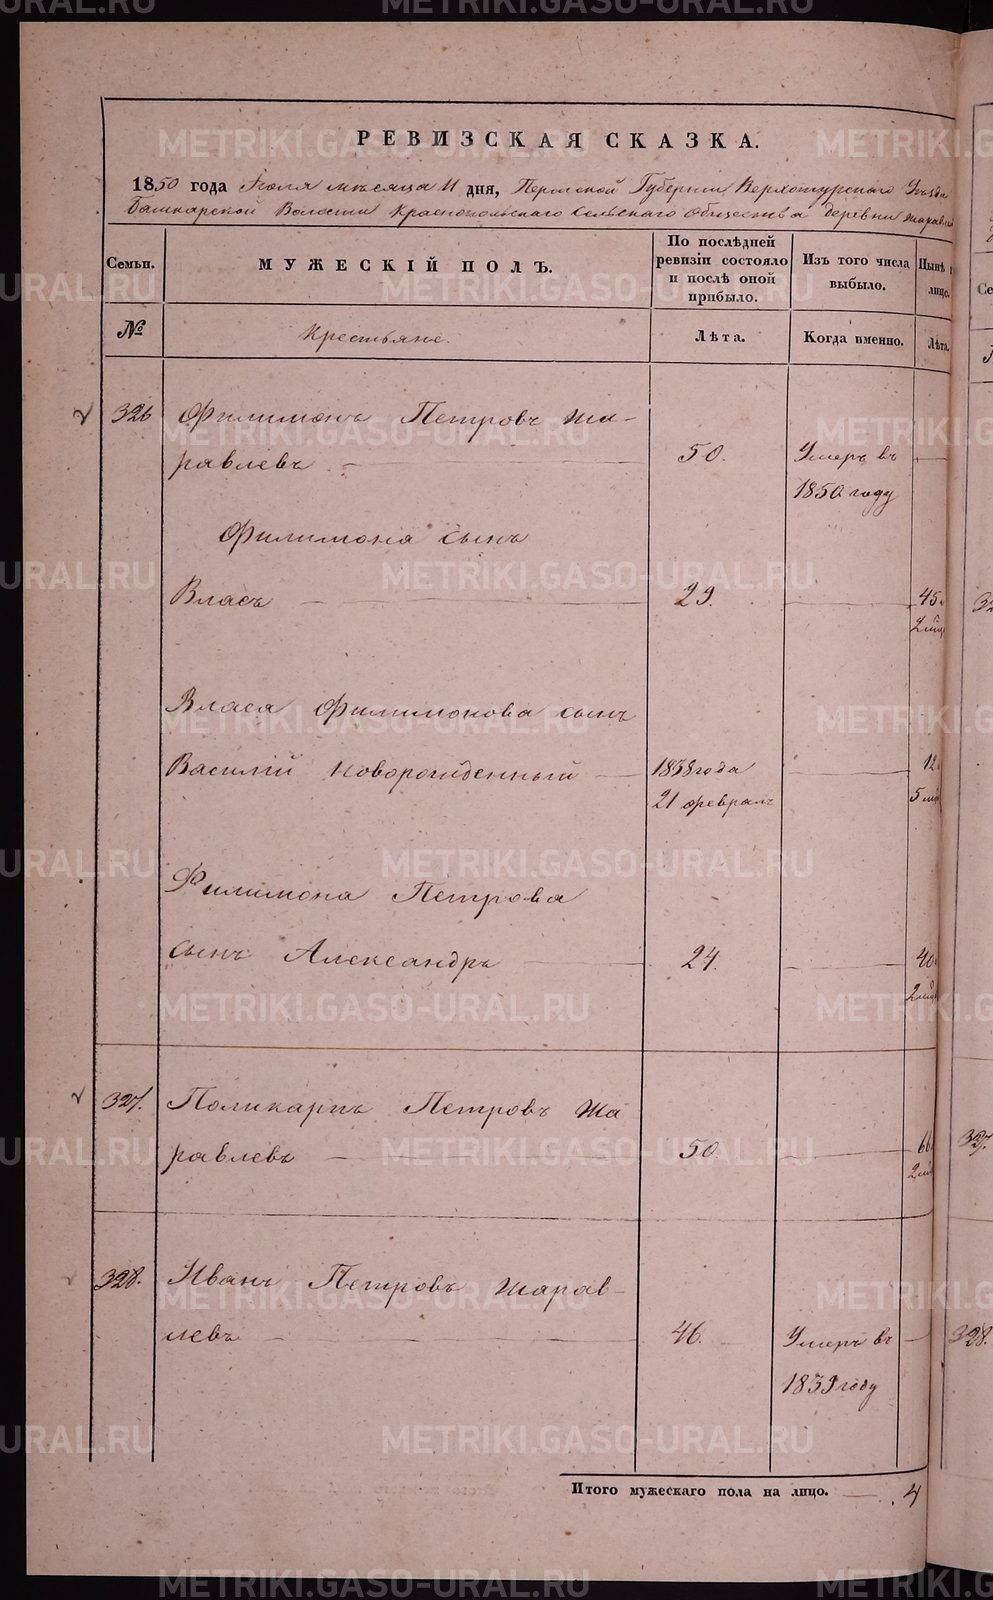 METRIKI.GASO-URAL.RU
РЕВИЗСКАЯ СКАЗКА.
1850 года, Іюля мѣсяца 11 дня, Пермской Губерніи Верхотурскаго Уѣзда
Башкарской Волости Краснопольскаго Сельскаго Общества деревни
Семьи.
МУЖЕСКІЙ ПОЛЪ.
По послѣдней ревизіи состояло и послѣ оной прибыло.
Изъ того числа выбыло.
Нынѣ
лицо.
№
Крестьяне.
Лѣта.
Когда именно.
Лѣта.
326 Филимонъ Петровъ Жа-
равлевъ 50. Умеръ въ
1850 году
Филимона сынъ
Власъ 29. 45
2
Власа Филимонова сынъ
Василій новорожденный 1838 года 12
21 февраля 5
Филимона Петрова
сынъ Александръ 24. 40
2
327. Поликарпъ Петровъ Жа
равлевъ 50. 66
2
328. Иванъ Петровъ Жарав-
левъ 46. Умеръ въ
1839 году
Итого мужескаго пола на лицо. 4
327.
328.